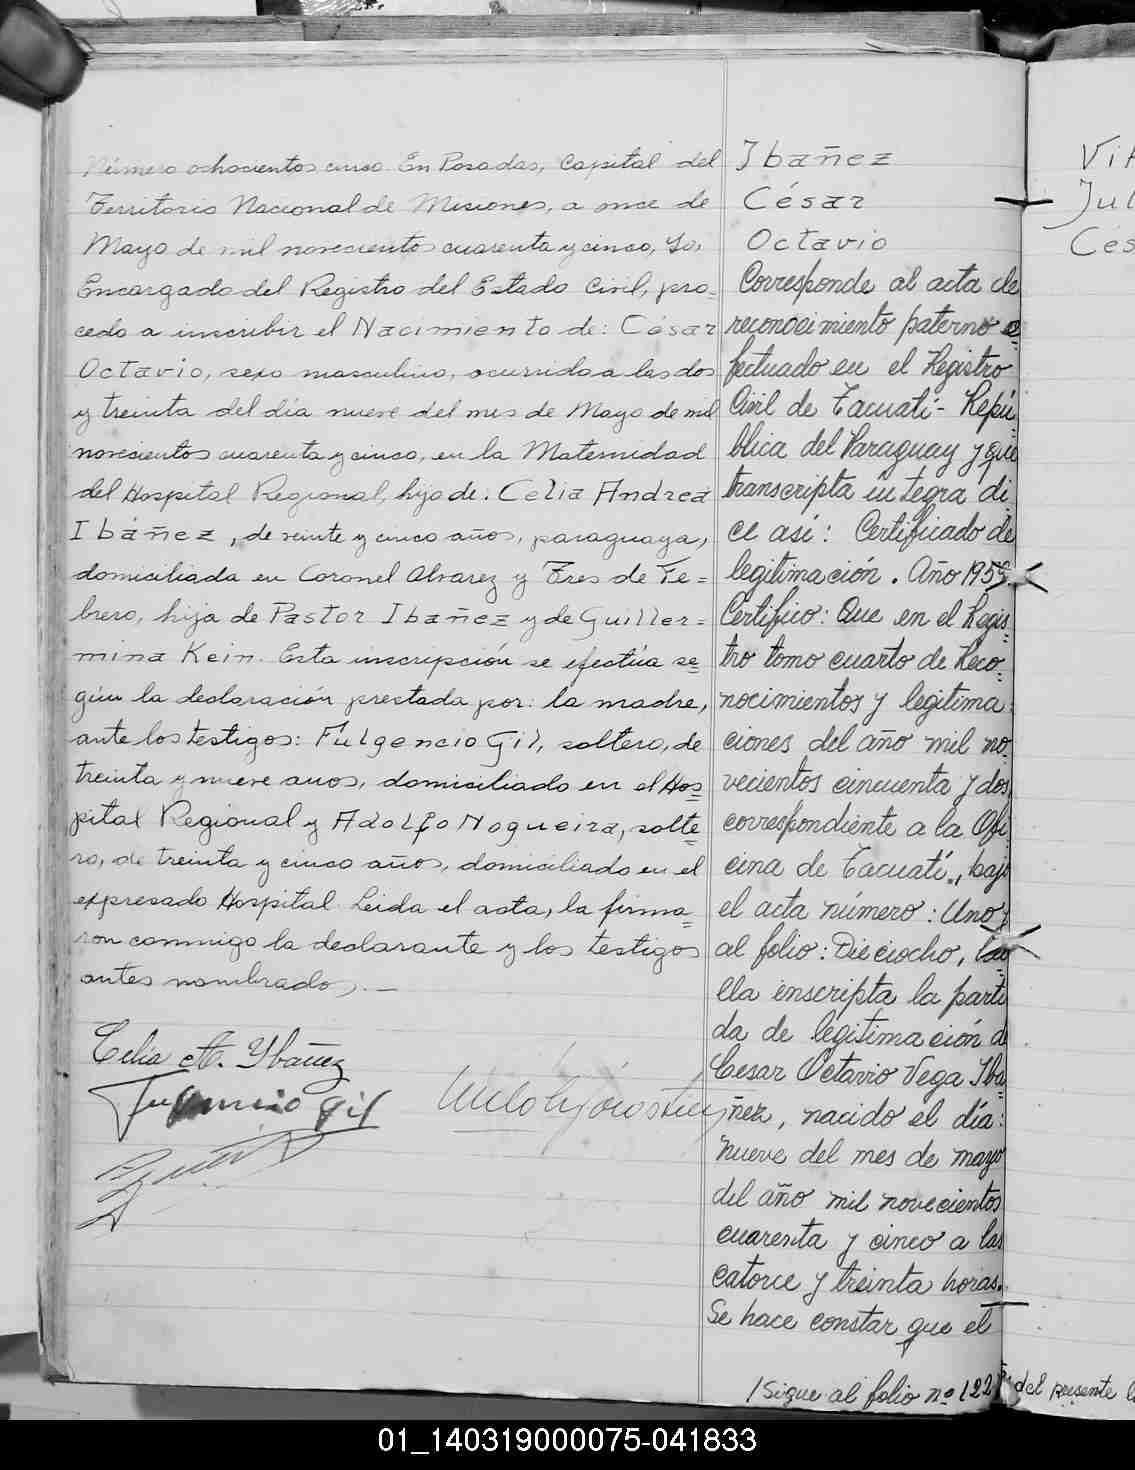 Número ochocientos cinco. En Posadas, Capital del
Territorio Nacional de Misiones, a once de
Mayo de mil novecientos cuarenta y cinco, Yo,
Encargado del Registro del Estado Civil, pro=
cedo a inscribir el Nacimiento de: César
Octavio, sexo masculino, ocurrido a las dos
y treinta del día nueve del mes de Mayo de mil
novecientos cuarenta y cinco, en la Maternidad
del Hospital Regional, hijo de: Celia Andrea
Ibáñez, de veinte y cinco años, paraguaya,
domiciliada en Coronel Alvarez y Tres de Fe=
brero, hija de Pastor Ibañez y de Guiller=
mina Kein. Esta inscripción se efectúa se=
gún la declaración prestada por: la madre,
ante los testigos: Fulgencio Gil, soltero, de
treinta y nueve anos, domiciliado en el Hos=
pital Regional y Adolfo Nogueira, solte=
ro, de treinta y cinco años, domiciliado en el
expresado Hospital. Leida el acta, la firma=
ron conmigo la declarante y los testigos
antes nombrados.—
Celia A. Ybañez
Fulgencio Gil
Ibañez
César
Octavio
Corresponde al acta de
reconocimiento paterno e=
fectuado en el Registro
Civil de Tacuatí - Repú=
blica del Paraguay y que
transcripta íntegra di
ce así: Certificado de
legitimación. Año 1959.
Certifico: Que en el Regis=
tro tomo cuarto de Reco=
nocimientos y legitima=
ciones del año mil no=
vecientos cincuenta y dos
correspondiente a la Ofi
cina de Tacuatí, bajo
el acta número: Uno y
al folio: Dieciocho,
lla enscripta la parti
da de legitimación de
Cesar Octavio Vega Iba=
ñez, nacido el día:
nueve del mes de mayo
del año mil novecientos
cuarenta y cinco a las
catorce y treinta horas.
Se hace constar que el
/Sigue al folio nº 122 del presente
Vi
Jul
Cés
01_140319000075-041833